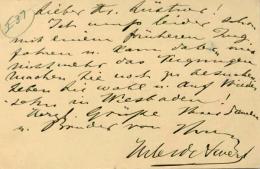 I 37
Lieber Hr. Küstner!
Ich muss leider schon
mit einem früheren Zug
fahren u. kann daher
nicht mehr das Vergnügen
machen Sie noch zu besuchen
Leben Sie wohl u. Auf Wieder-
sehn in Wiesbaden.
Herzl. Grüße Ihren Damen
u. Freunden von Ihrem